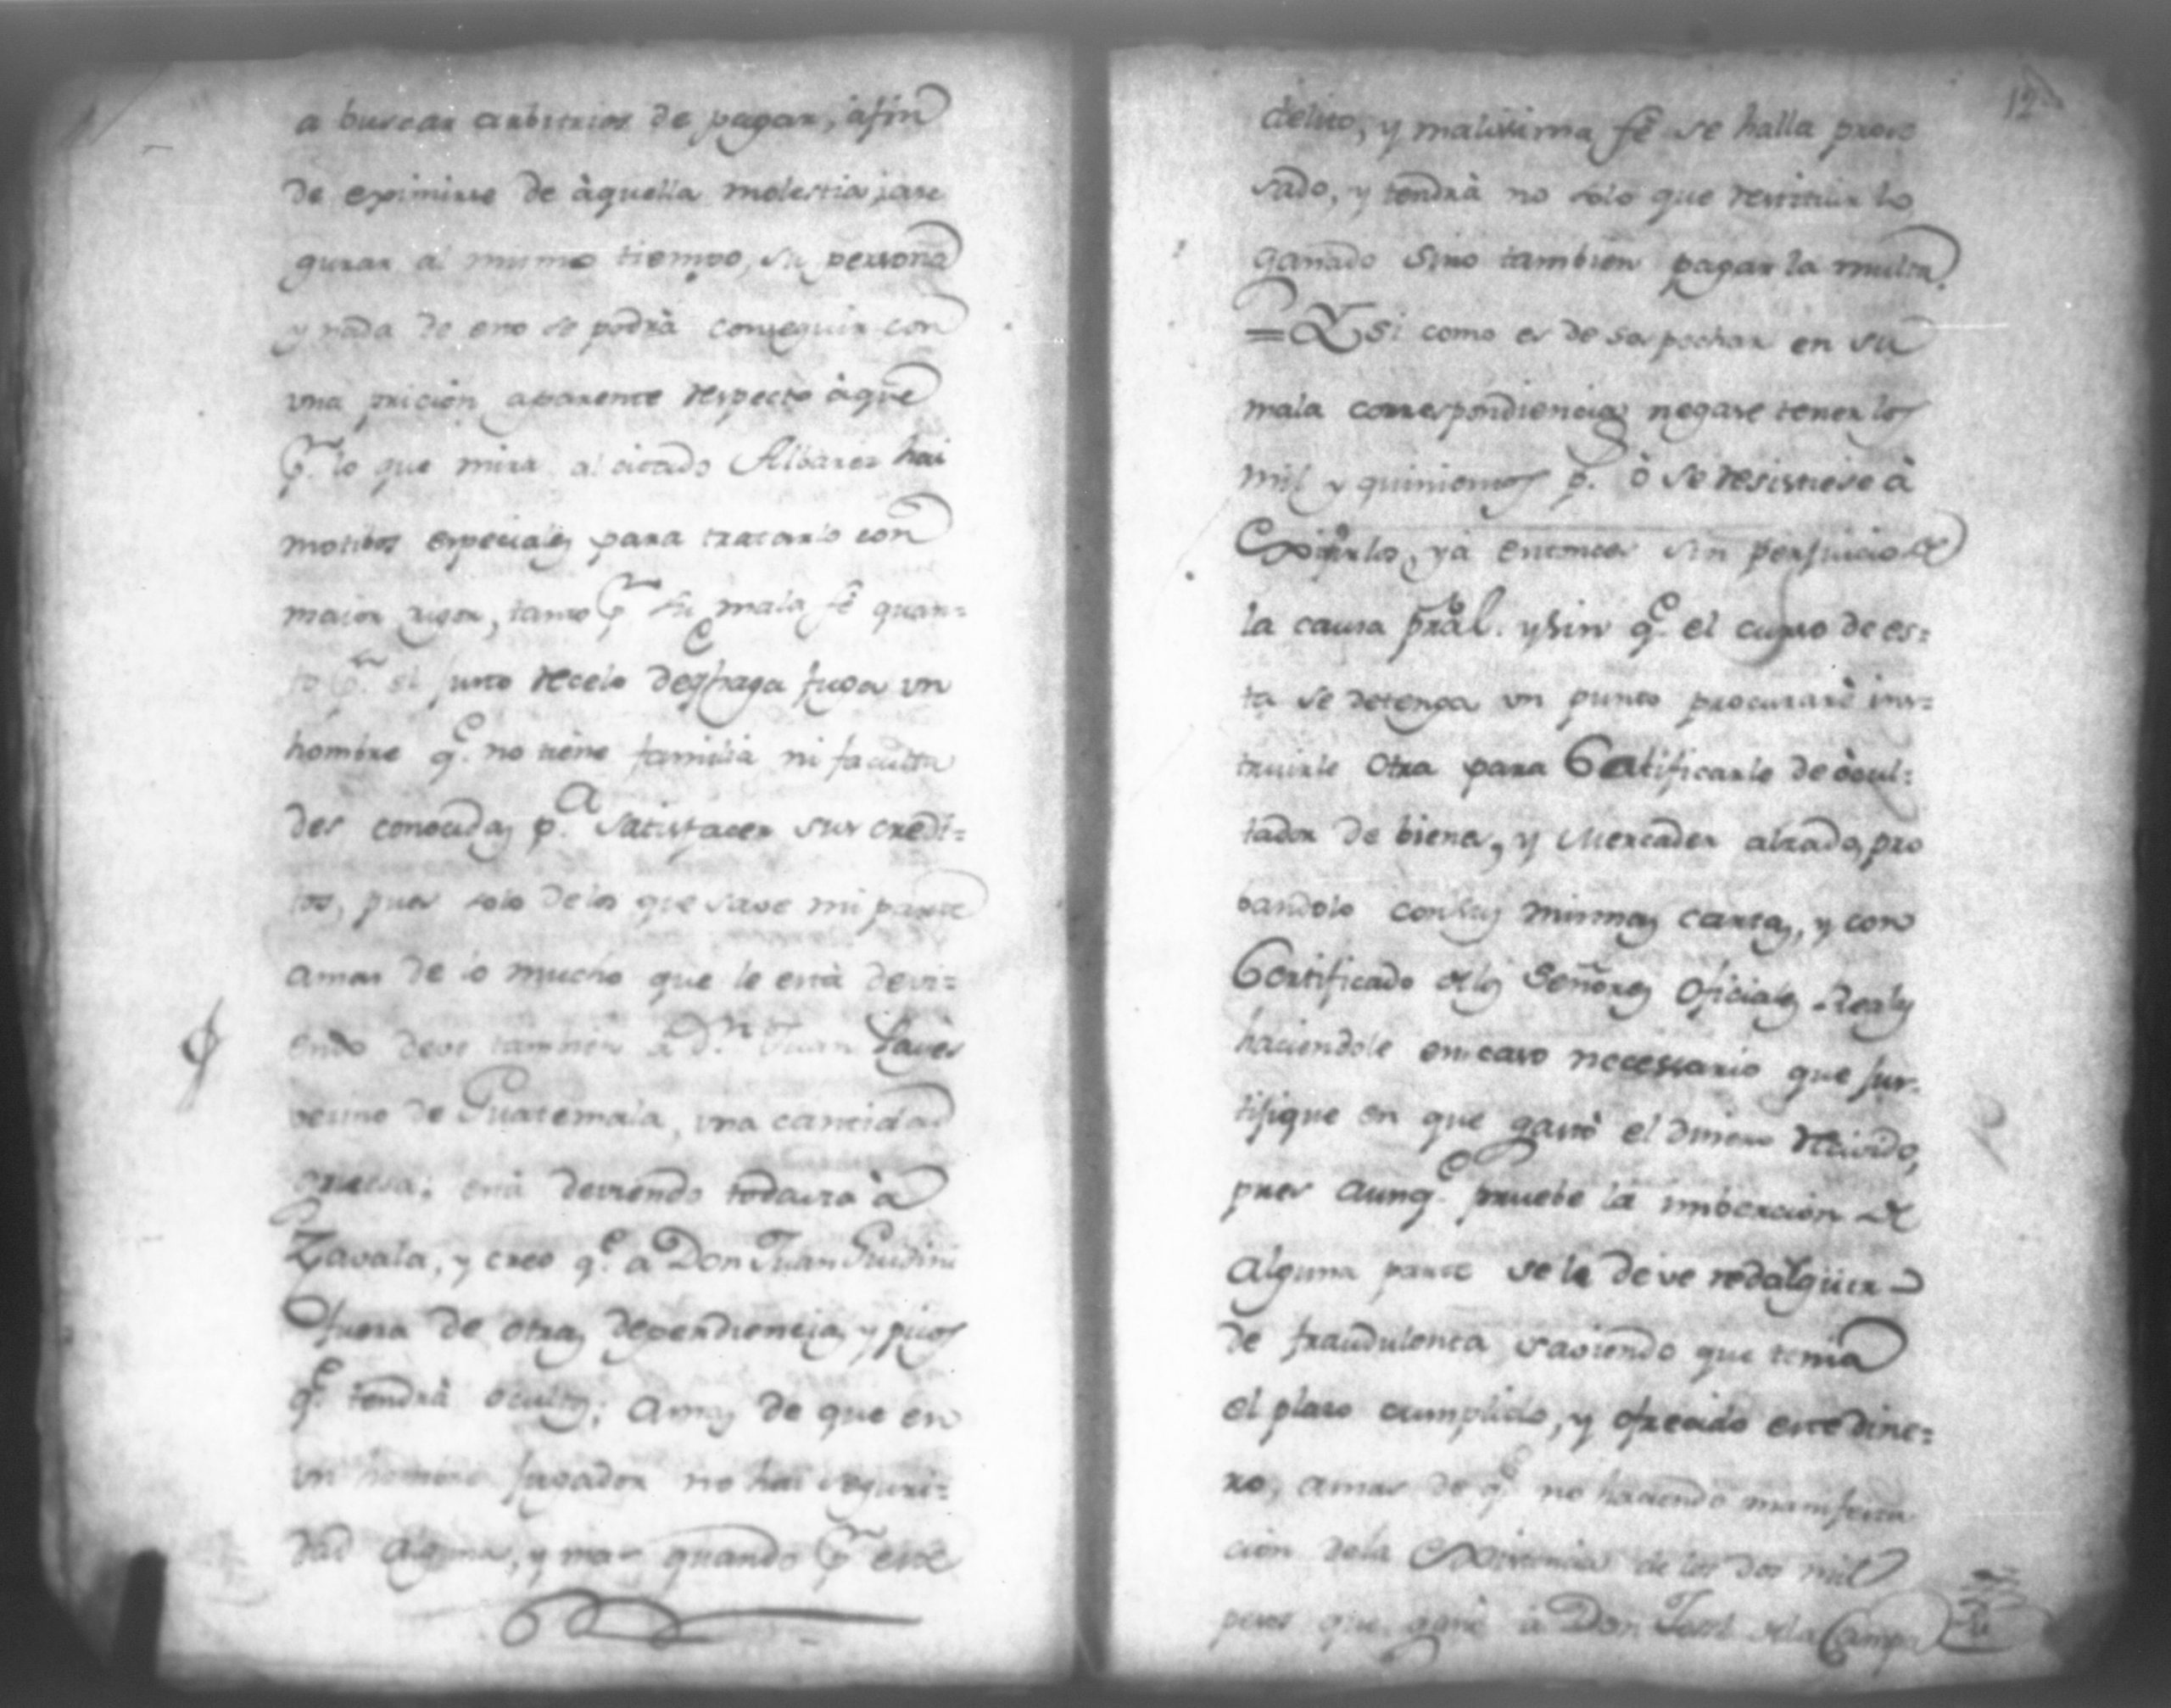 a buscar arbitrios de pagar, afin
de eximirse de àquella molestia jase
gurar al mismo tiempo, su persona
y nada de eso se podrà conseguir con
una pricion aparente respecto àque
p.r lo que mira al citado Albarez hai
motibos especiales para tratarlo con
maior rigor, tanto p.r su mala fê quan=
to p.r el justo recelo deq.e haga fuga un
hombre q.e no tiene familia ni faculta
des conocidas p.a satisfacer sus credi=
tos, pues solo delos que save mi parte
amas de lo mucho que le està devi=
endo deve tambien a D.n Juan
vecino de Guatemala, una cantidad
gruesa; està deviendo todavia à
Zavala, y creo q.e a Don Juan
fuera de otras dependencias y picos
q.e tendrà ocultos; amas de que en
un hombre jugador no hai seguri=
dad alguna, y mas quando p.r este
12
delito, y malissima fê se halla proce
sado, y tendrà no solo que restituir lo
ganado sino tambien pagar la multa.
= Y si como es de sospechar en su
mala correspondiencia negase tener los
mil y quinientos p.s ò se resistiese à
Exivirlos, yà entonces sin perjuicio de
la causa pral. y sin q.e el curso de es=
ta se detenga un punto procurarè ins=
truirle otra para Certificarle de òcul=
tador de bienes, y Mercader alzado, pro
bandolo consus mismas cartas, y con
Certificado delos Señores Oficiales Reales
haciendole encaso necessario que jus=
tifique en que gastò el dinero recivido,
pues aunq.e pruebe la imbercion de
alguna parte se le deve redalguir
de fraudulenta saviendo que tenia
el plazo cumplido, y ofrecido este dine=
ro, amas de q.e no haciendo manifesta
cion dela Existencia de los dos mil
pesos que ganè à Don Josè dela Campa